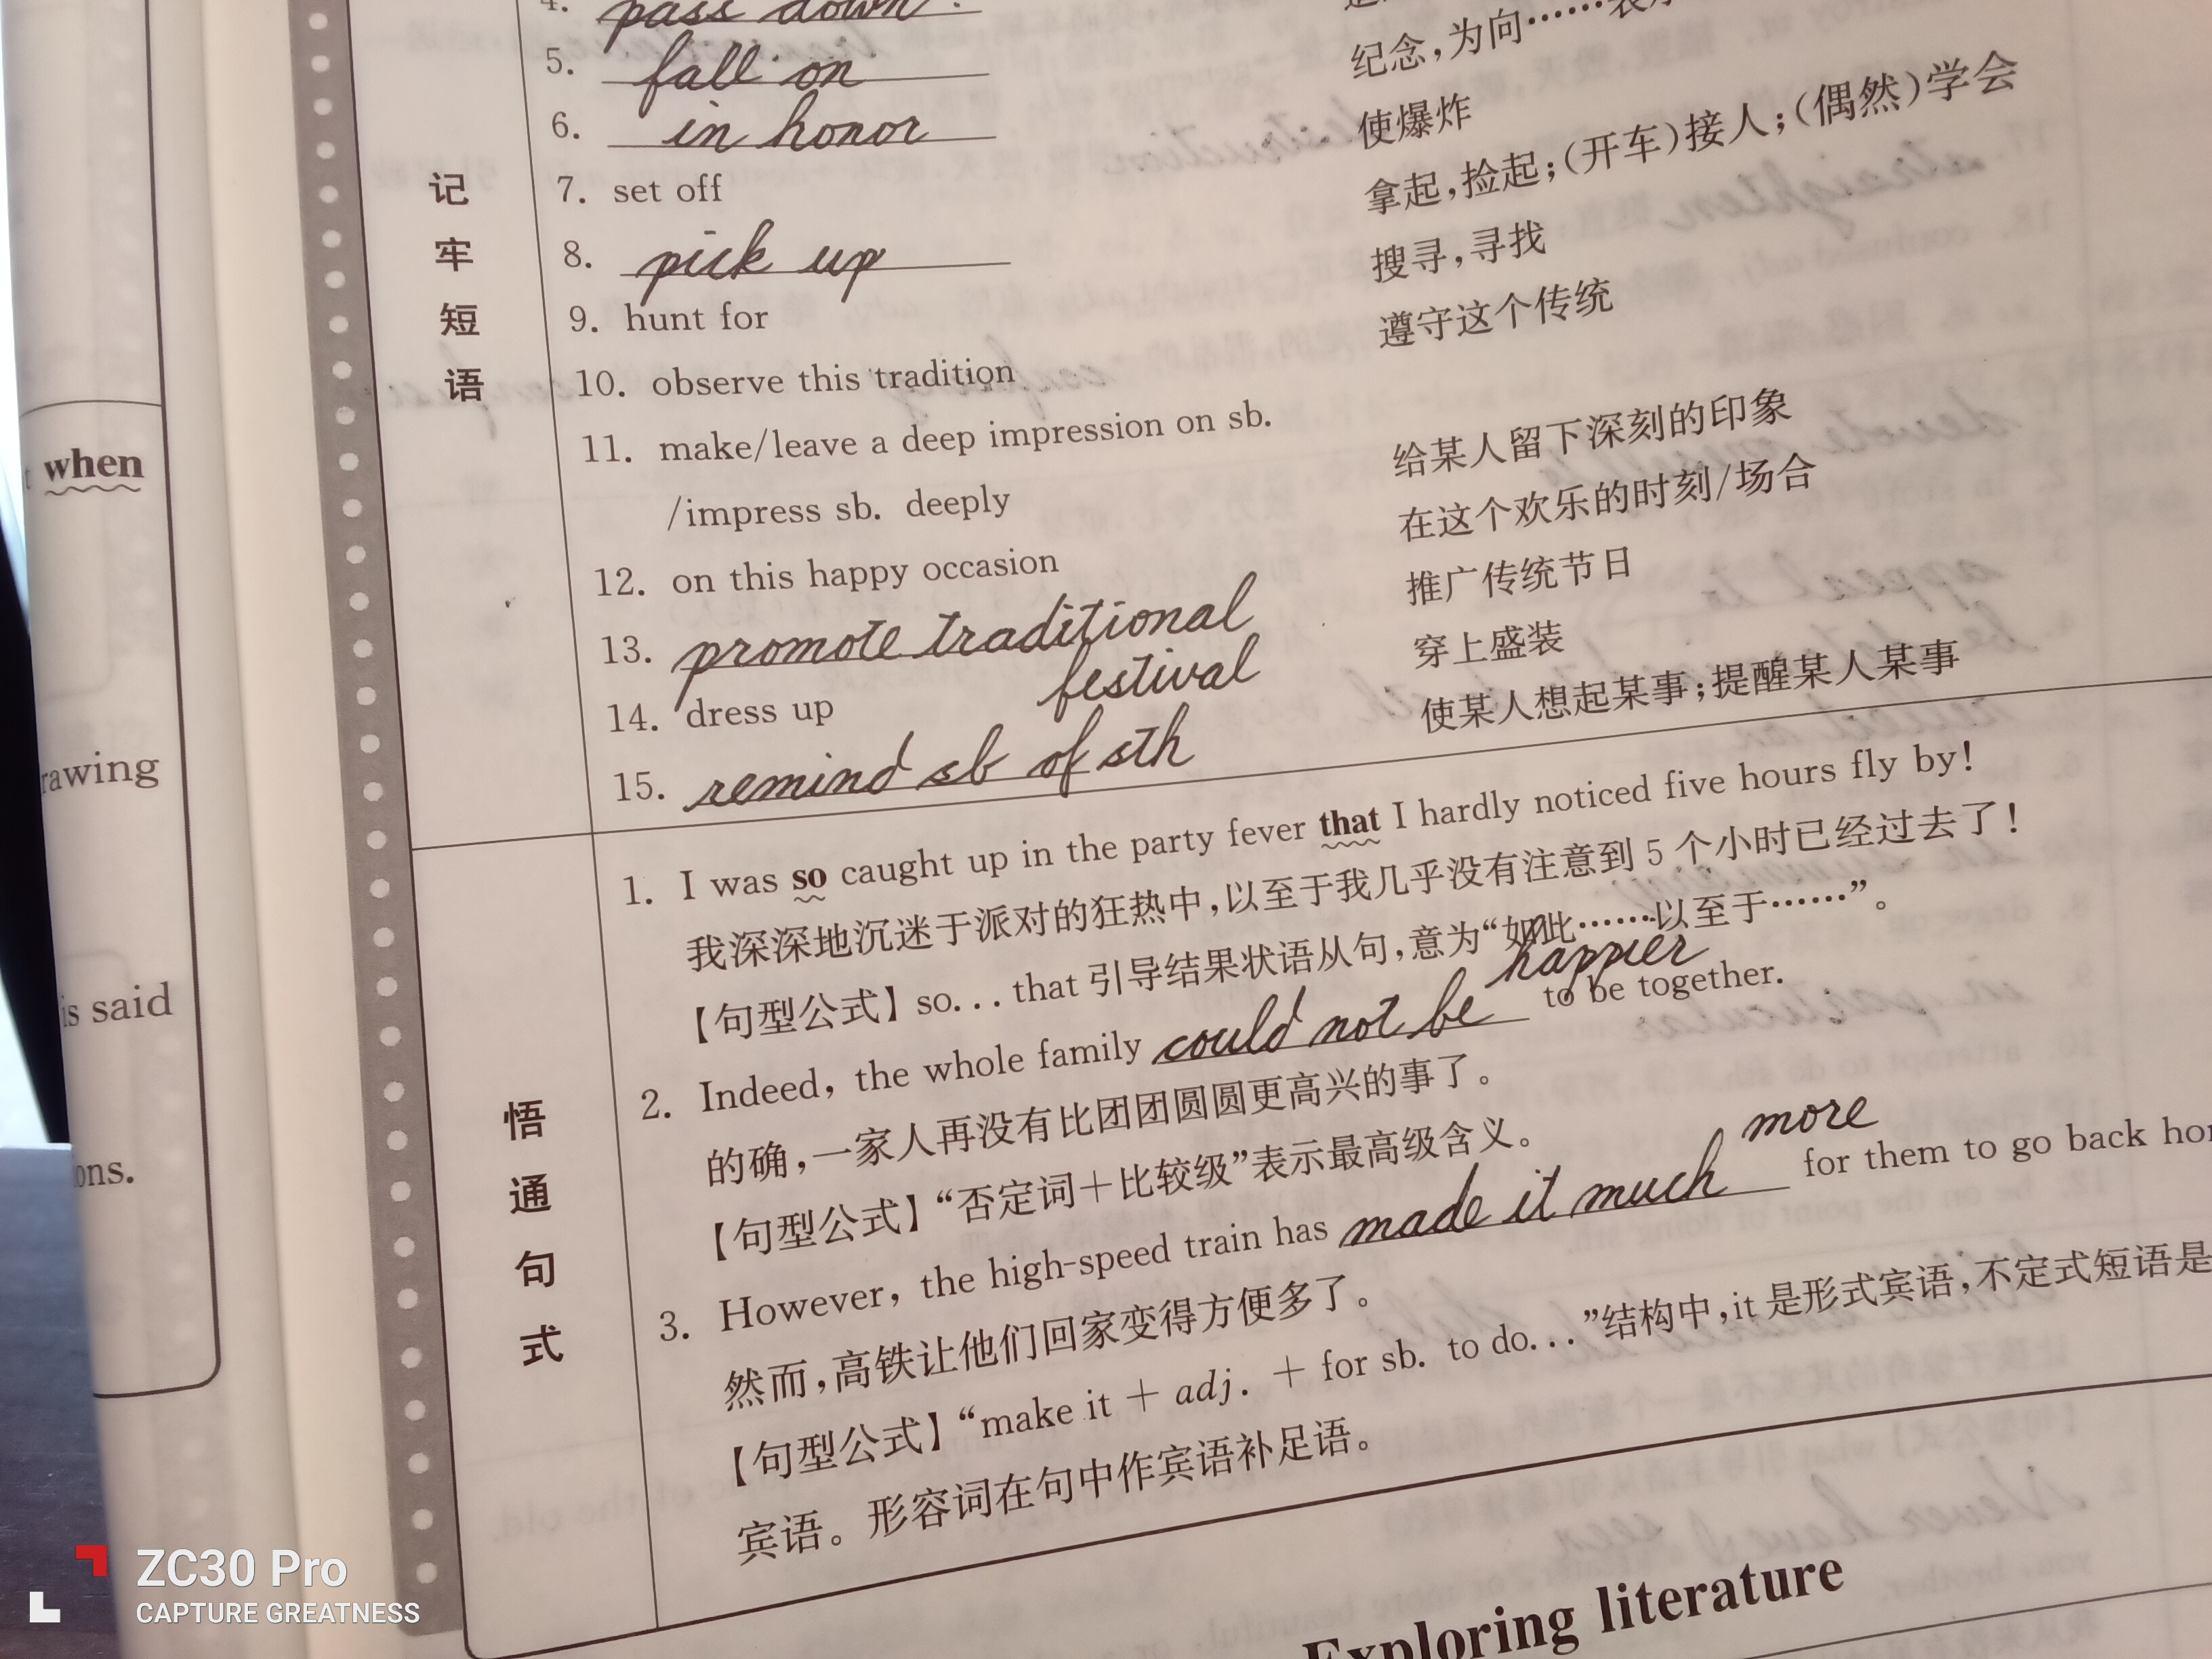 4. pass down
5. fall on
纪念,为向……
6. in honor
使爆炸
7. set off
拿起,捡起;(开车)接人;(偶然)学会
8. pick up
搜寻,寻找
9. hunt for
遵守这个传统
10. observe this tradition
11. make/leave a deep impression on sb.
/impress sb. deeply
给某人留下深刻的印象
12. on this happy occasion
在这个欢乐的时刻/场合
13. promote traditional
festival
推广传统节日
14. dress up
穿上盛装
15. remind sb of sth
使某人想起某事;提醒某人某事
记牢短语
1. I was so caught up in the party fever that I hardly noticed five hours fly by!
我深深地沉迷于派对的狂热中,以至于我几乎没有注意到5个小时已经过去了!
【句型公式】so...that引导结果状语从句,意为“如此……以至于……”。
2. Indeed, the whole family could not be happier to be together.
的确,一家人再没有比团团圆圆更高兴的事了。
【句型公式】“否定词+比较级”表示最高级含义。
3. However, the high-speed train has made it much more for them to go back
然而,高铁让他们回家变得方便多了。
【句型公式】“make it + adj. + for sb. to do...”结构中,it是形式宾语,不定式短语是
宾语。形容词在句中作宾语补足语。
悟通句式
Exploring literature
when
rawing
is said
ons.
ZC30 Pro
CAPTURE GREATNESS